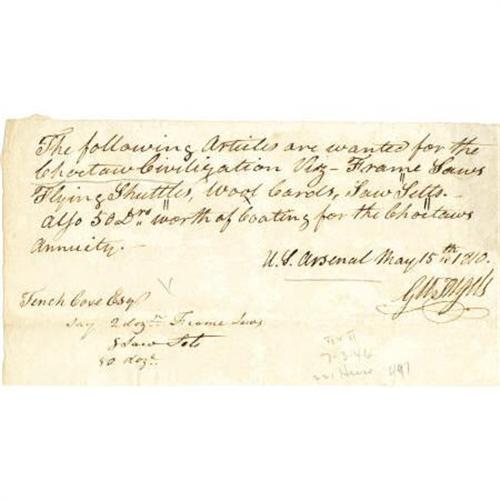 The following Articles are wanted for the
Choctaw Civilization Viz - Frame Saws
Flying Shuttles, Wool Cards, Saw Setts. -
also 50 Drs worth of Coating for the Choctaws
Annuity. -
U.S. Arsenal May 15th 1810.
Tench Coxe Esqr
Say 2 dozn Frame Saws
8 Saw Sets
80 doz
7-3-46
491